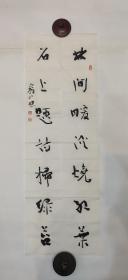 林间暖酒烧红叶
石上题诗扫绿苔